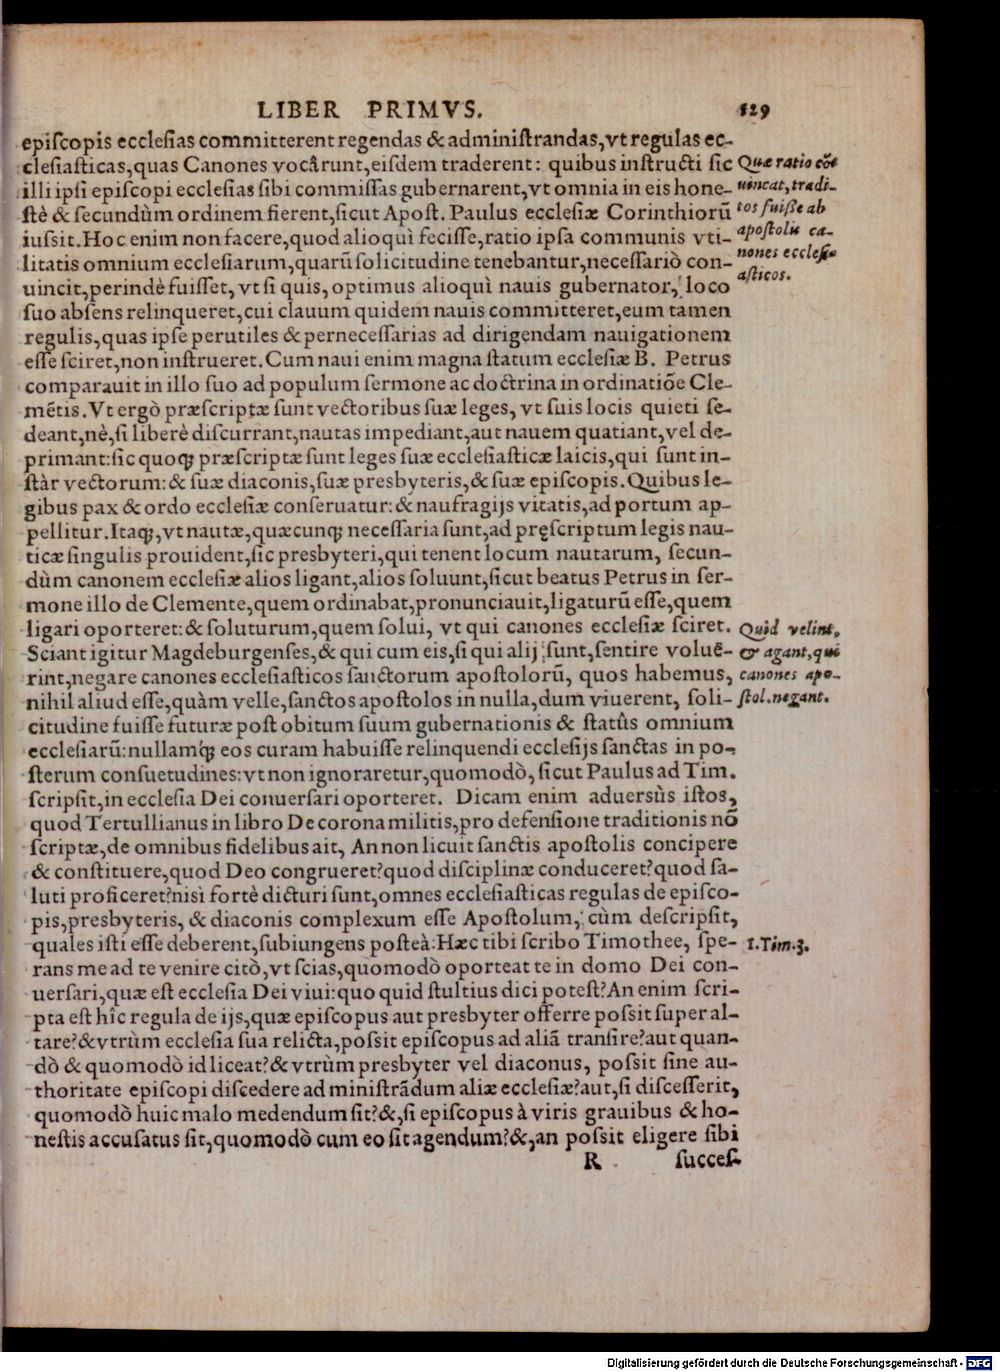 LIBER PRIMVS. 129
epiſcopis eccleſias committerent regendas & adminiſtrandas, vt regulas ec-
cleſiaſticas, quas Canones vocârunt, eiſdem traderent: quibus inſtructi ſic
illi ipſi epiſcopi eccleſias ſibi commiſſas gubernarent, vt omnia in eis hone-
ſtè & ſecundùm ordinem fierent, ſicut Apoſt. Paulus eccleſiæ Corinthiorũ
iuſsit. Hoc enim non facere, quod alioquì feciſſe, ratio ipſa communis vti-
litatis omnium eccleſiarum, quarũ ſolicitudine tenebantur, neceſſariò con-
uincit, perindè fuiſſet, vt ſi quis, optimus alioquì nauis gubernator, loco
ſuo abſens relinqueret, cui clauum quidem nauis committeret, eum tamen
regulis, quas ipſe perutiles & perneceſſarias ad dirigendam nauigationem
eſſe ſciret, non inſtrueret. Cum naui enim magna ſtatum eccleſiæ B. Petrus
comparauit in illo ſuo ad populum ſermone ac doctrina in ordinatiõe Cle-
mẽtis. Vt ergò præſcriptæ ſunt vectoribus ſuæ leges, vt ſuis locis quieti ſe-
deant, nè, ſi liberè diſcurrant, nautas impediant, aut nauem quatiant, vel de-
primant: ſic quoqꝫ præſcriptæ ſunt leges ſuæ eccleſiaſticæ laicis, qui ſunt in-
ſtàr vectorum: & ſuæ diaconis, ſuæ presbyteris, & ſuæ epiſcopis. Quibus le-
gibus pax & ordo eccleſiæ conſeruatur: & naufragijs vitatis, ad portum ap-
pellitur. Itaqꝫ, vt nautæ, quæcunqꝫ neceſſaria ſunt, ad pręſcriptum legis nau-
ticæ ſingulis prouident, ſic presbyteri, qui tenent locum nautarum, ſecun-
dùm canonem eccleſiæ alios ligant, alios ſoluunt, ſicut beatus Petrus in ſer-
mone illo de Clemente, quem ordinabat, pronunciauit, ligaturũ eſſe, quem
ligari oporteret: & ſoluturum, quem ſolui, vt qui canones eccleſiæ ſciret.
Sciant igitur Magdeburgenſes, & qui cum eis, ſi qui alij ſunt, ſentire voluê-
rint, negare canones eccleſiaſticos ſanctorum apoſtolorũ, quos habemus,
nihil aliud eſſe, quàm velle, ſanctos apoſtolos in nulla, dum viuerent, ſoli-
citudine fuiſſe futuræ poſt obitum ſuum gubernationis & ſtatûs omnium
eccleſiarũ: nullamqꝫ eos curam habuiſſe relinquendi eccleſijs ſanctas in po-
ſterum conſuetudines: vt non ignoraretur, quomodò, ſicut Paulus ad Tim.
ſcripſit, in eccleſia Dei conuerſari oporteret. Dicam enim aduersùs iſtos,
quod Tertullianus in libro De corona militis, pro defenſione traditionis nõ
ſcriptæ, de omnibus fidelibus ait, An non licuit ſanctis apoſtolis concipere
& conſtituere, quod Deo congrueret? quod diſciplinæ conduceret? quod ſa-
luti proficeret? nisì fortè dicturi ſunt, omnes eccleſiaſticas regulas de epiſco-
pis, presbyteris, & diaconis complexum eſſe Apoſtolum, cùm deſcripſit,
quales iſti eſſe deberent, ſubiungens poſteà: Hæc tibi ſcribo Timothee, ſpe-
rans me ad te venire citò, vt ſcias, quomodò oporteat te in domo Dei con-
uerſari, quæ eſt eccleſia Dei viui: quo quid ſtultius dici poteſt? An enim ſcri-
pta eſt hîc regula de ijs, quæ epiſcopus aut presbyter offerre poſsit ſuper al-
tare? & vtrùm eccleſia ſua relicta, poſsit epiſcopus ad aliã tranſire? aut quan-
dò & quomodò id liceat? & vtrùm presbyter vel diaconus, poſsit ſine au-
thoritate epiſcopi diſcedere ad miniſtrãdum aliæ eccleſiæ? aut, ſi diſceſſerit,
quomodò huic malo medendum ſit? &, ſi epiſcopus à viris grauibus & ho-
neſtis accuſatus ſit, quomodò cum eo ſit agendum? &, an poſsit eligere ſibi
R ſucceſ-
Quæ ratio cõe
uincat, tradi-
tos fuiſſe ab
apoſtolis ca-
nones eccleſi-
aſticos.
Quid velint,
& agant, qui
canones apo-
ſtol. negant.
1. Tim. 3.
Digitalisierung gefördert durch die Deutsche Forschungsgemeinschaft - DFG